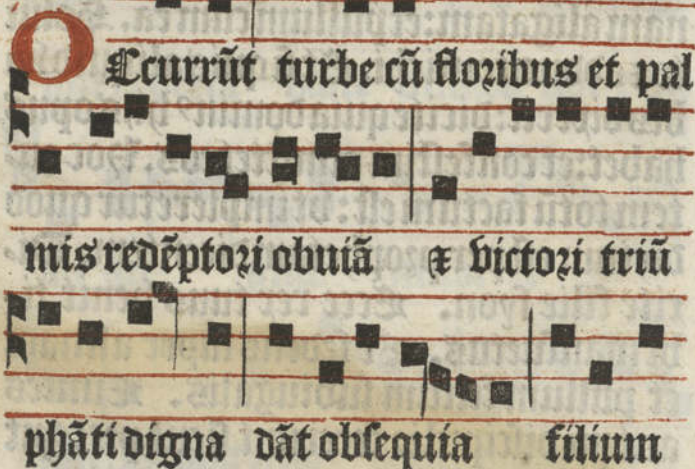 OCcurrūt turbe cū floribus et pal
mis redēptori obuiā ⁊ victori triū
phāti digna dāt obſequia filium